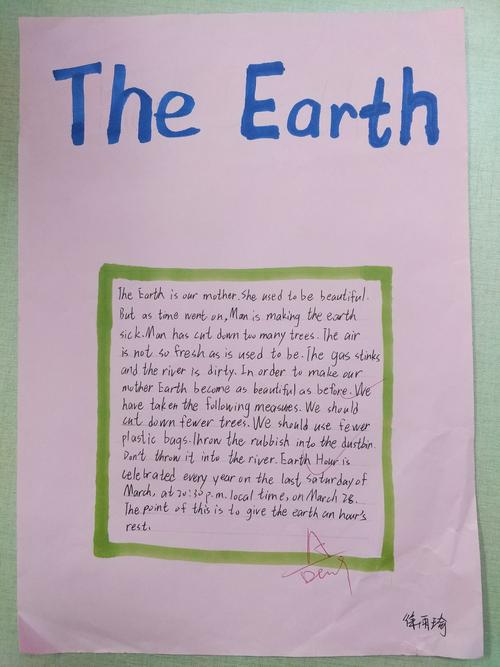 The Earth
The Earth is our mother. She used to be beautiful.
But as tome went on, Man is making the earth
sick. Man has cut down too many trees. The air
is not so fresh as is used to be. The gas stinks
and the river is dirty. In order to make our
mother Earth become as beautiful as before. We
have taken the following measures. We should
cut down fewer trees. We should use fewer
plastic bags. Throw the rubbish into the dustbin.
Don't throw it into the river. Earth Hour is
celebrated every year on the last Saturday of
March, at 20:30 p.m. local time, on March 28.
The point of this is to give the earth an hour's
rest.
A
徐雨瑜